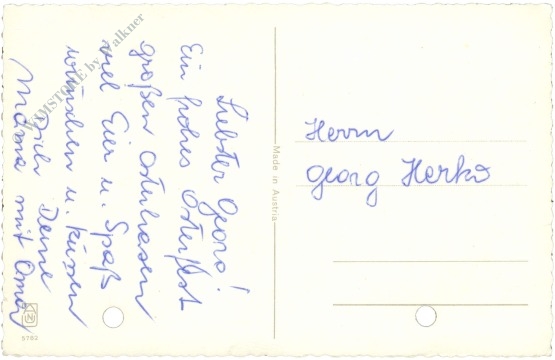 Liebster Georg!
Ein frohes Osterfest
großen Osterhasen
viel Eier u. Spaß
wünschen u. küssen
Dich Deine
Mama mit Oma
Herrn
Georg Herko
Made in Austria
5782
by Falkner